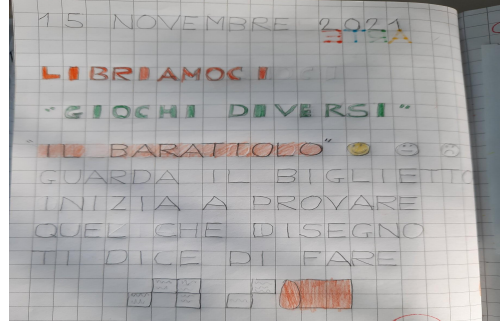 15 NOVEMBRE 2021
ARTE
LIBRIAMOCI
"GIOCHI DIVERSI"
"IL BARATTOLO"
GUARDA IL BIGLIETTO
INIZIA A PROVARE
QUEL CHE DISEGNO
TI DICE DI FARE